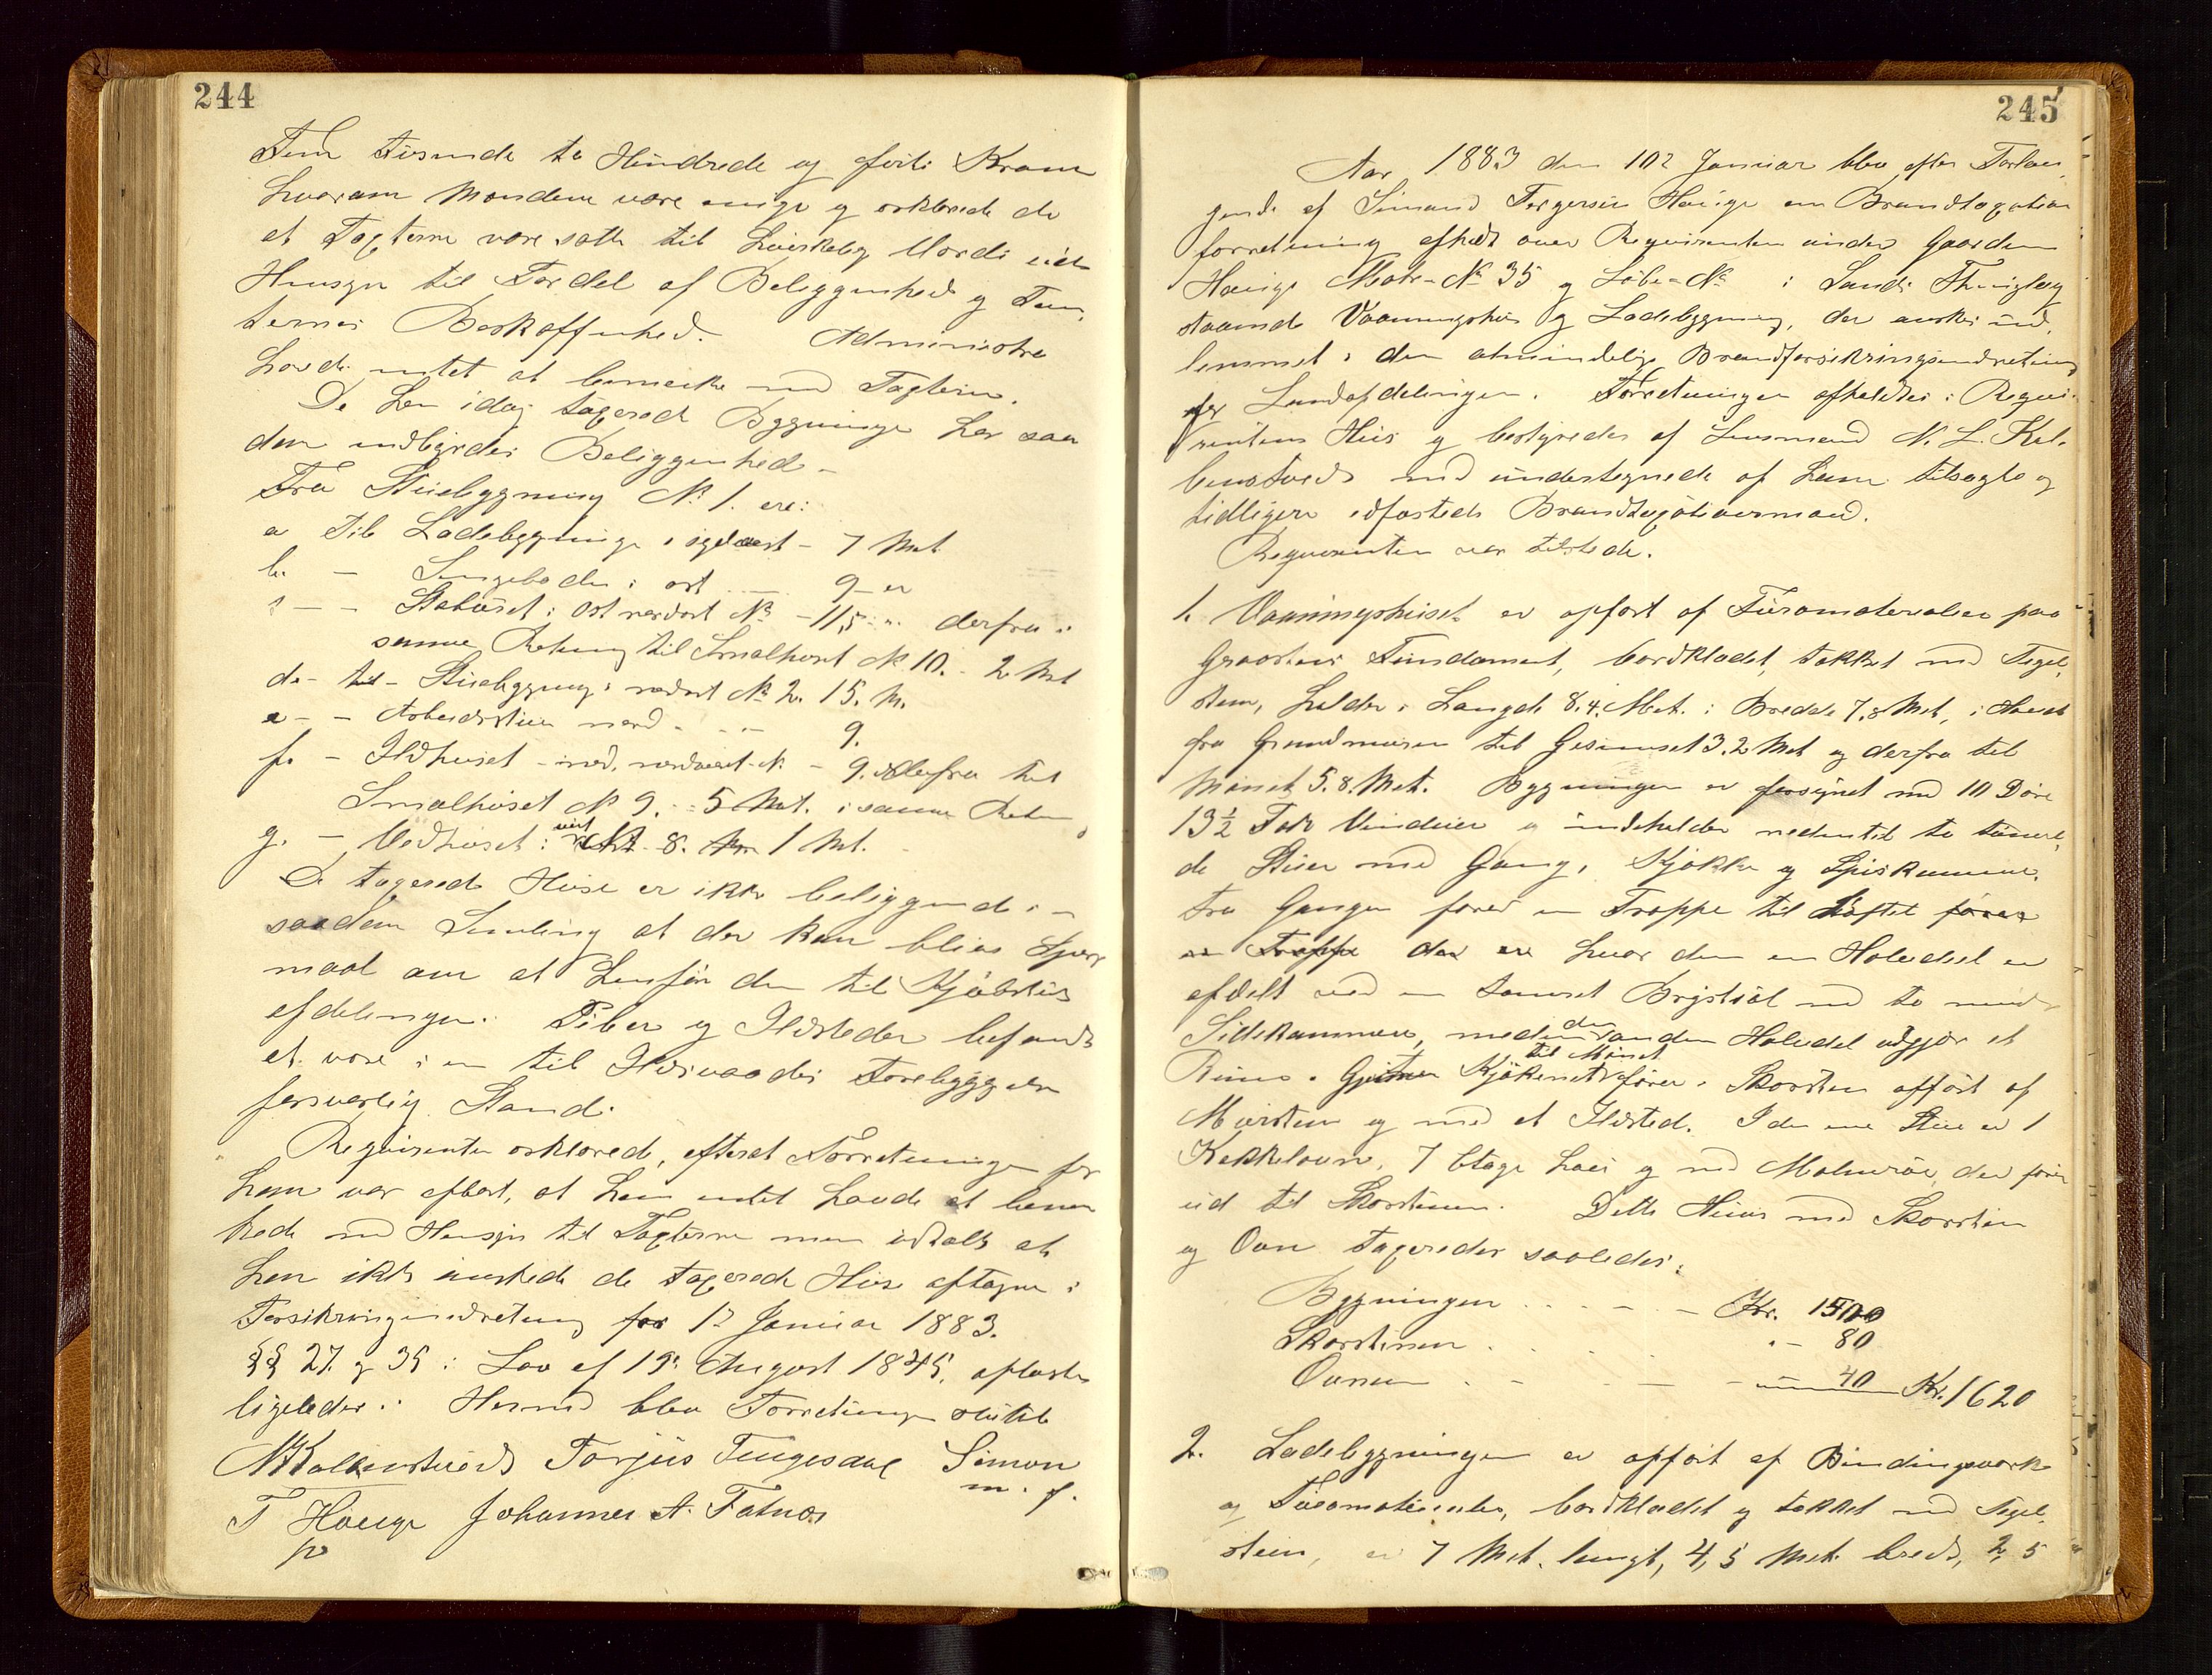 244
Fem tusende to Hundrede og førti Kroner
hvorom Mændene vare enige og erklærede de
at Taxterne vare satte til Huiskelig Værdi uden
Hensyn til Fordel af Beliggenhed og Tom,
ternes Beskaffenhed. Administra
havde intet at bemærke ved Taxterne.
De her idag taxerede Bygninger har saa
dan indbyrdes Beliggenhed –
Fra Stuebygning No 1. ere:
a Til Ladebygninge i sydvest – 7 Met
b. – Sengeboden i ost – 9 –
c – – Stabuset i Ost nordost No – 11,5 – " derfra i
samme Retning til Smalhuset No 10. – 2 Met
d – til – Stuebygning i nordost No 2. 15. M.
e – – Arbeidsstuen nord – – – 9.
f. – Ildhuset – nord, nordvest No – 9. derfra til
Smalhuset No 9. – 5 Met. i samme Retn,
g. – Vedhuset i vest No 8. 1 Met.
De taxerede Huse er ikke beliggende i
saadan Samling at der kan blive Spørgs
maal om at henføre dem til Kjøbstads
afdelingen. Piber og Ildsteder befandtes
at være i en til Ildsvaades Forebyggelse
forsvarlig Stand.
Reqvirenten erklærede, efterat Forretningen for
ham var oplæst, at han intet havde at bemær
kede med Hensyn til Taxterne men udtalte at
han ikke ønskede de taxerede Huse optagne i
Forsikringsindretning før 1ste Januar 1883.
§§ 27. og 35 i Lov af 19de August 1845. oplæste
ligeledes. Hermed blev Forretningen sluttet
NLKolbenstvedt Torjus Tengesdal Simon
T Hauge Johannes A. Fatnes m. f.
p
245
Aar 1883 den 10de Januar blev efter Forlan,
gende af Simand Torgersen Hauge en Brandtaxations
forretning afholdt over Reqvirenten under Gaarden
Hauge Matr-No 35 og Løbe-No i Sands Thinglag
staaende Vaaningshus og Ladebygning, der ønskes ind,
lemmet i den almindelige Brandforsikringsindretning
for Landafdelingen. Forretningen afholdtes i Reqvi,
rentens Hus og bestyredes af Lensmand N. L. Kol,
benstvedt med undertegnede af ham tilsagte og
tidligere edfæstede Brandtaxationsmænd.
Reqvirenten var tilstede.
1. Vaaningshuset er opført af Furumaterialier paa
Graastens Fundament, bordklædet, tækket med Tegl,
sten, holder i Længde 8.4. Met. i Bredde 7.8 Met, i Høide
fra Grundmuren til Gesimset 3.2 Met og derfra til
Mønet 5.8. Met. Bygningen er forsynet med 10 Døre
13½ Fak Vinduer og indeholder nedentil to tømre,
de Stuer med Gang, Kjøkken og Spiskammer.
Fra Gangen fører en Trappe til Loftet fører
en Trappe der er hvor den en Halvdel er
afdelt ved en tømret Brystsal med to mindre
Sidekammere, medens den anden Halvdel udgjør et
Rum. Gjennem Kjøkkenet til Mønet fører Skorsten opført af
Mursten og med et Ildsted. I den ene Stue er 1
Kakkelovn, 7 Etage høi og med Malmrør, der fører
ud til Skorstenen. Dette Huus med Skorsten
og Ovn taxeredes saaledes:
Bygningen . . . – – Kr. 1500
Skorstenen . . . . " – 80
Ovnen . – – – – 40 Kr. 1620
2. Ladebygningen er opført af Bindingsværk
og Furumaterialer, bordklædet og tækket med Tegl,
sten, er 7 Met. langt, 4,5 Met bredt, 2,5